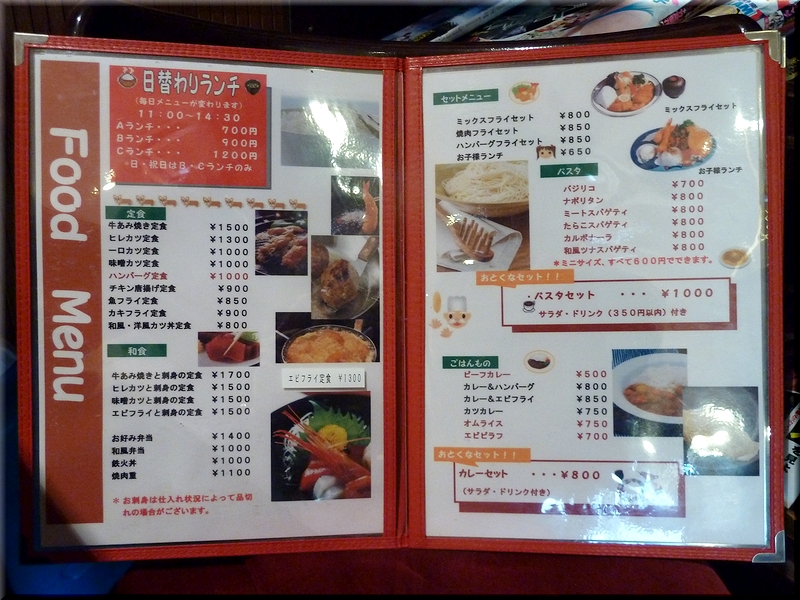 Food Menu
日替わりランチ
(毎日メニューが変わります)
11:00~14:30
Aランチ・・・ 700円
Bランチ・・・ 900円
Cランチ・・・ 1200円
日・祝日はB・Cランチのみ
定食
牛あみ焼き定食 ¥1500
ヒレカツ定食 ¥1300
一口カツ定食 ¥1000
味噌カツ定食 ¥1000
ハンバーグ定食 ¥1000
チキン唐揚げ定食 ¥900
魚フライ定食 ¥850
カキフライ定食 ¥900
和風・洋風カツ丼定食 ¥800
和食
エビフライ定食 ¥1300
牛あみ焼きと刺身の定食 ¥1700
ヒレカツと刺身の定食 ¥1500
味噌カツと刺身の定食 ¥1500
エビフライと刺身の定食 ¥1500
お好み弁当 ¥1400
和風弁当 ¥1000
鉄火丼 ¥1000
焼肉重 ¥1100
*お刺身は仕入れ状況によって品切
れの場合がございます。
セットメニュー
ミックスフライセット ¥800
焼肉フライセット ¥850
ハンバーグフライセット ¥850
お子様ランチ ¥650
ミックスフライセット
お子様ランチ
パスタ
バジリコ ¥700
ナポリタン ¥800
ミートスパゲティ ¥800
たらこスパゲティ ¥800
カルボナーラ ¥800
和風ツナスパゲティ ¥800
*ミニサイズ、すべて600円でできます。
おとくなセット!!
・パスタセット ・・・ ¥1000
サラダ・ドリンク(350円以内)付き
ごはんもの
ビーフカレー ¥500
カレー&ハンバーグ ¥800
カレー&エビフライ ¥850
カツカレー ¥750
オムライス ¥750
エビピラフ ¥700
おとくなセット!!
カレーセット ・・・¥800
(サラダ・ドリンク付き)